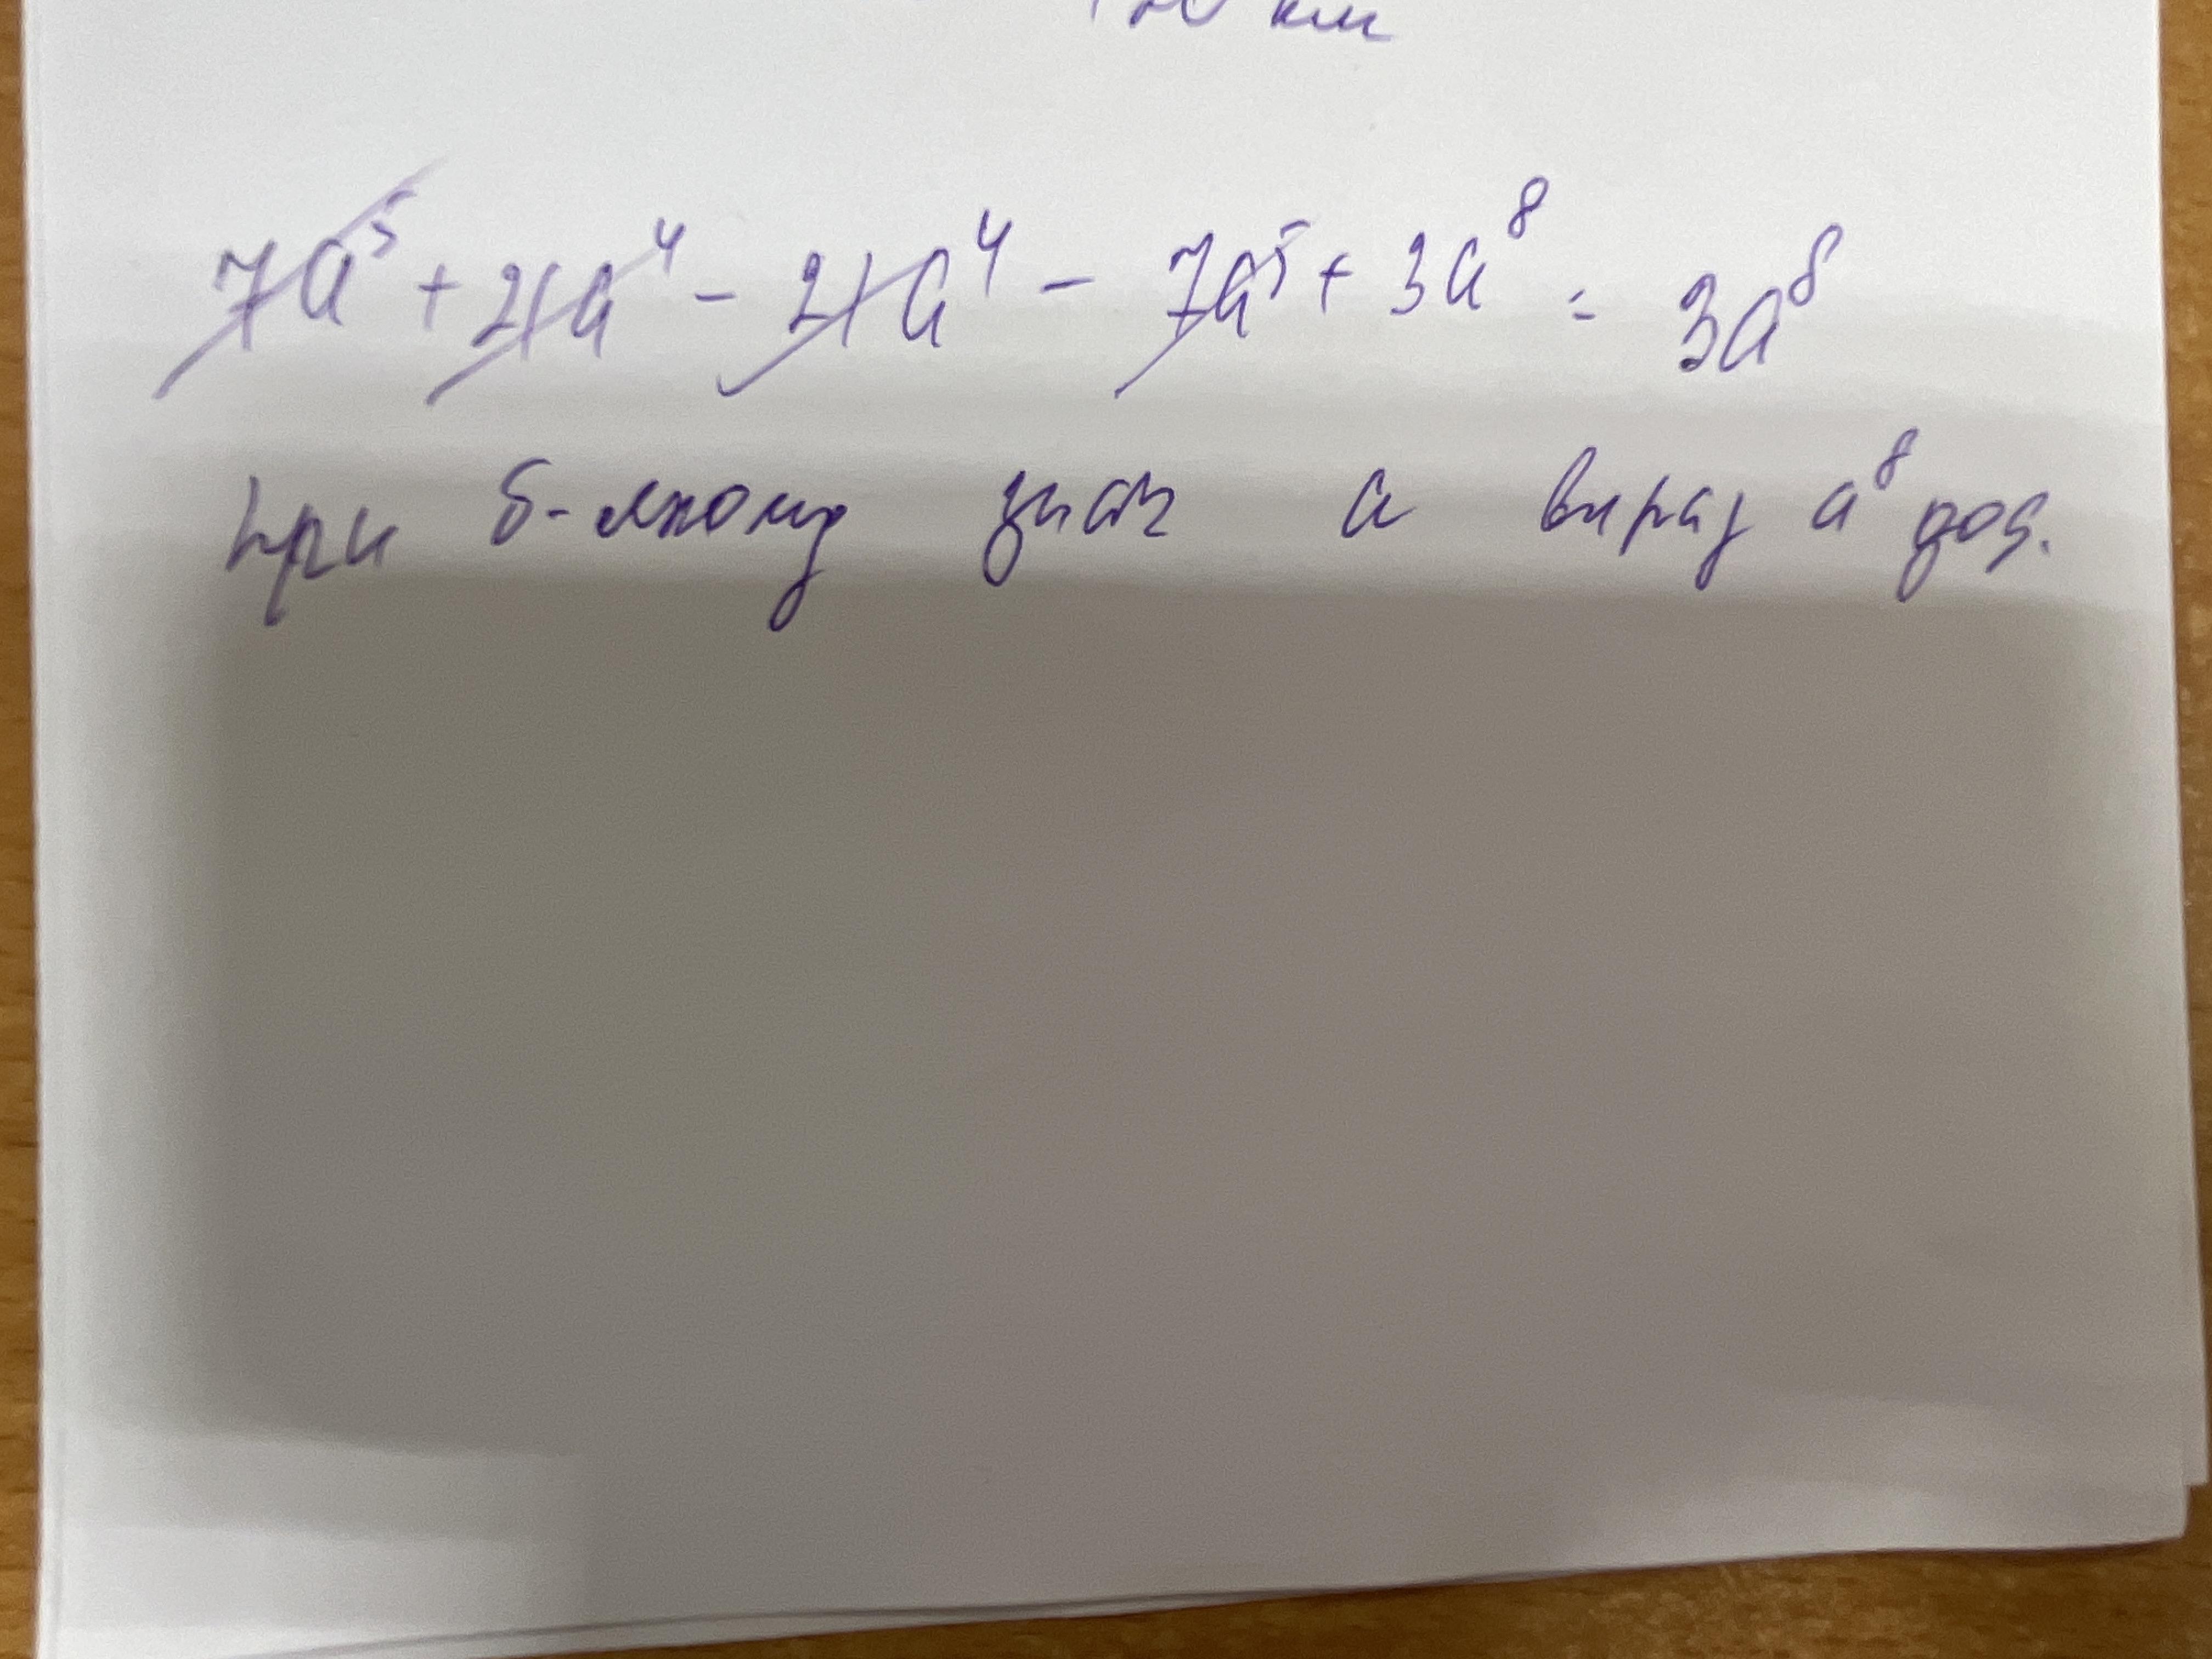 км
7a⁵ + 21a⁴ - 21a⁴ - 7a⁵ + 3a⁸ = 3a⁸
при б-якому знач a вираз a⁸ дод.